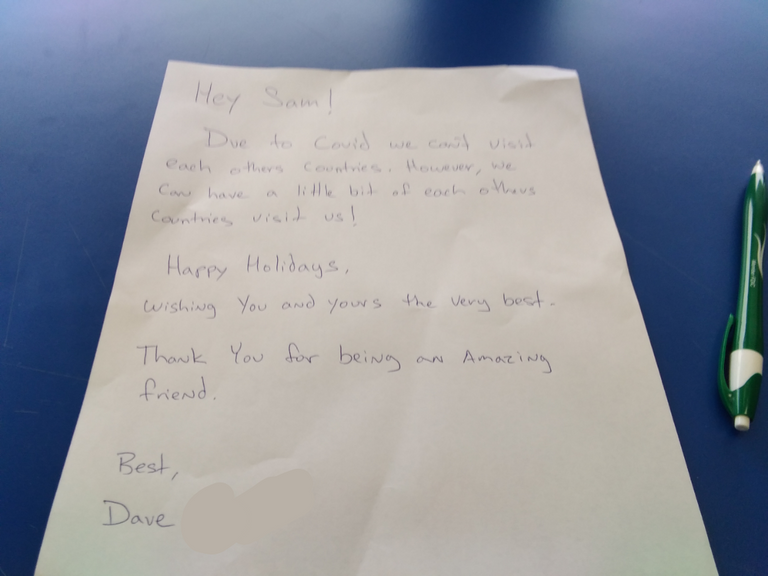 Hey Sam!
Due to Covid we can't visit
each others countries. However, we
can have a little bit of each others
countries visit us!
Happy Holidays,
Wishing You and yours the very best.
Thank You for being an Amazing
friend.
Best,
Dave